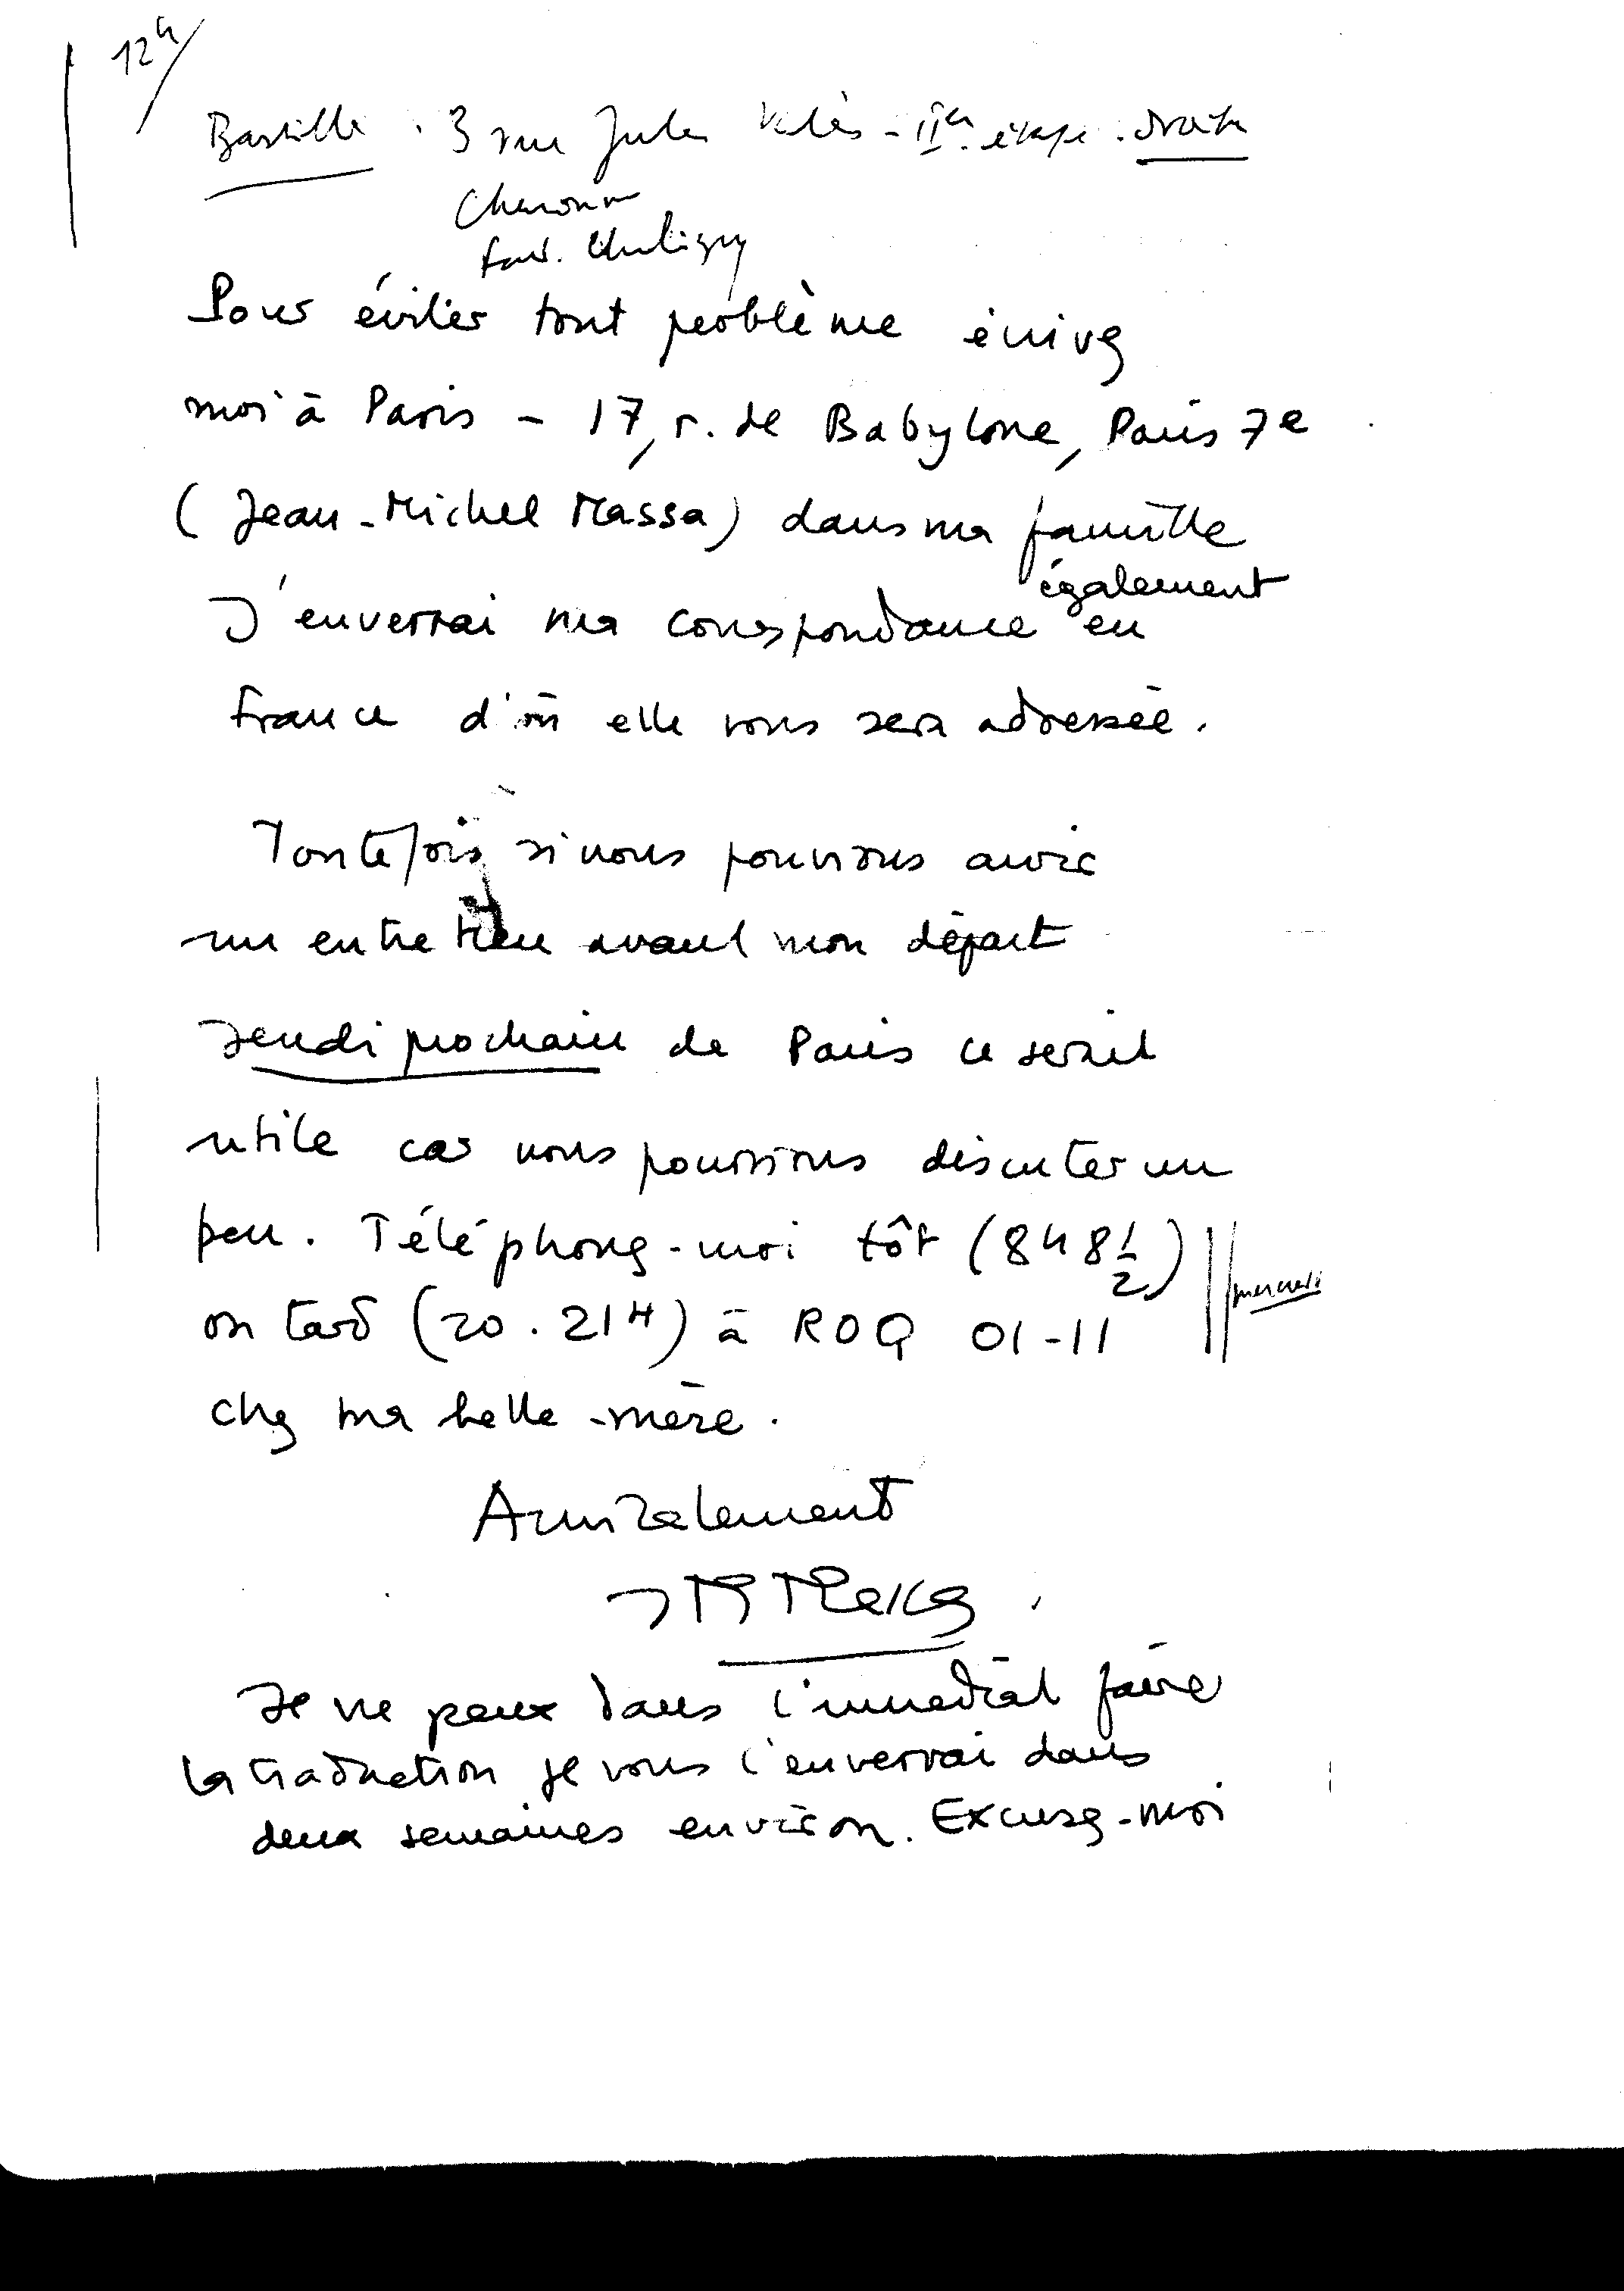 12h
Bastille . 3 rue Jules Vallès - IIe. étage . droite
Charonne
Pour éviter tout problème écrivez
moi à Paris - 17, r. de Babylone, Paris 7e
(Jean-Michel Massa) dans ma famille
également
J'enverrai ma correspondance en
France d'où elle vous sera adressée.
Toutefois si nous pouvions avoir
un entretien avant mon départ
jeudi prochain de Paris ce serait
utile car nous pourrions discuter un
peu. Téléphonez-moi tôt (8h 8 1/2)
mercredi
ou tard (20. 21H) à ROQ 01-11
chez ma belle-mère.
Amicalement
JM Massa
Je ne peux dans l'immédiat faire
la traduction je vous l'enverrai dans
deux semaines environ. Excusez-moi